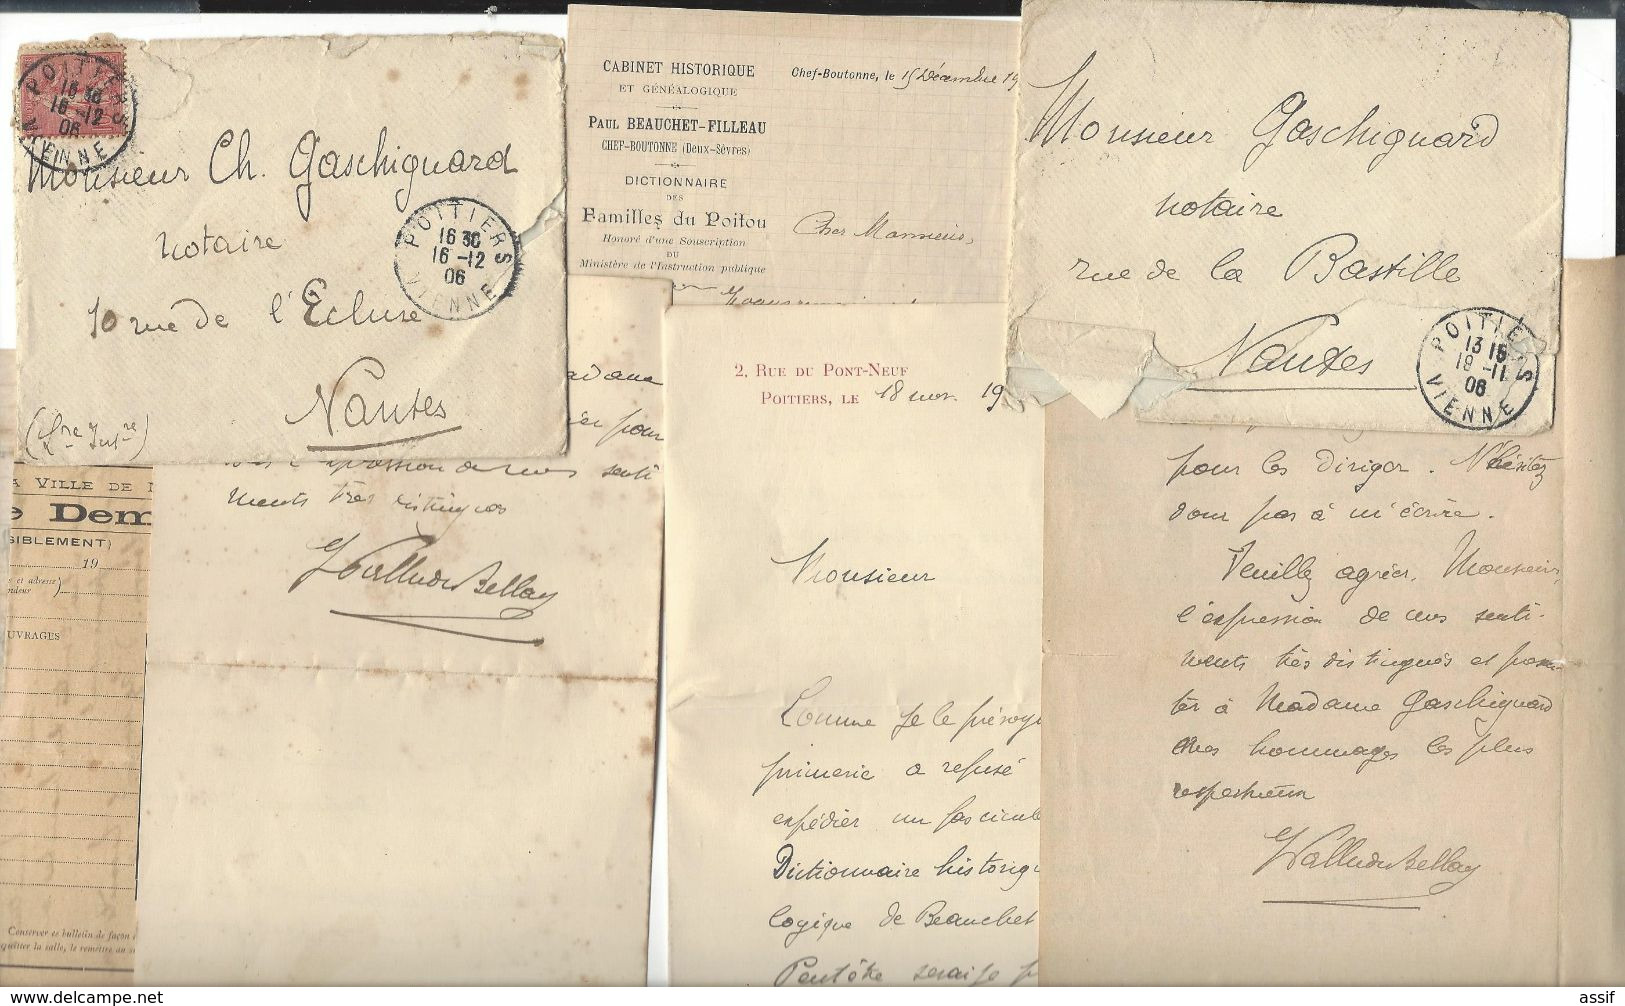 POITIERS
16 30
16 -12
06
VIENNE
Monsieur Ch. Gaschignard
notaire
10 rue de l'Ecluse
Nantes
(Lre Infre)
POITIERS
16 30
16 -12
06
VIENNE
CABINET HISTORIQUE
ET GÉNÉALOGIQUE
PAUL BEAUCHET-FILLEAU
CHEF-BOUTONNE (Deux-Sèvres)
DICTIONNAIRE
DES
Familles du Poitou
Honoré d'une Souscription
DU
Ministère de l'Instruction publique
Chef-Boutonne, le 15 Décembre 19
Cher Monsieur,
Monsieur Gaschignard
notaire
rue de la Bastille
Nantes
POITIERS
13 15
18 -11
06
VIENNE
pour
l'expression de mes senti
ments très distingués
A VILLE DE
e Dem
SIBLEMENT)
19
s et adresse)
ndeur
OUVRAGES
Conserver ce bulletin de façon
quitter la salle, le remettre au
2, RUE DU PONT-NEUF
POITIERS, LE 18 nov. 19
Monsieur
Comme je le prévoy
primerie a refusé
expédier un fascicule
Dictionnaire historiq
logique de Beauchet
Peut être serais je p
pour les diriger. N'hésitez
donc pas à m'écrire.
Veuillez agréer, Monsieur,
l'expression de mes senti-
ments très distingués et présen
ter à Madame Gaschignard
mes hommages les plus
respectueux
assif
https://www.delcampe.net